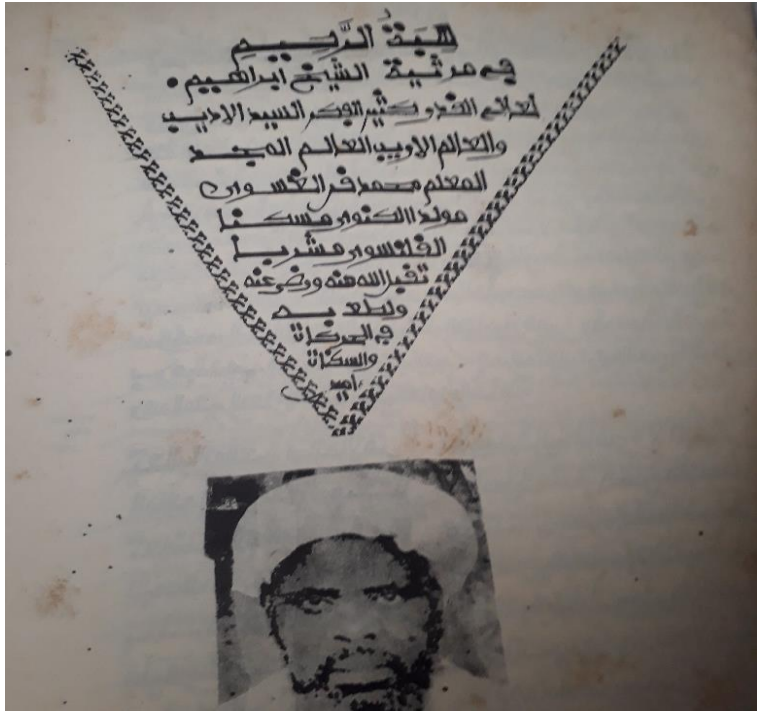 هبة الرحيم
في مرثية الشيخ ابراهيم.
لعالي القدر كثير الفكر السيد الاديب
والعالم الاريب العالم المجد
المعلم محمد الغسوي
مولدا الكنوي مسكنا
مشربا
تقبل الله منه ورضي عنه
ولطف به
في الحركات
والسكنات
امين